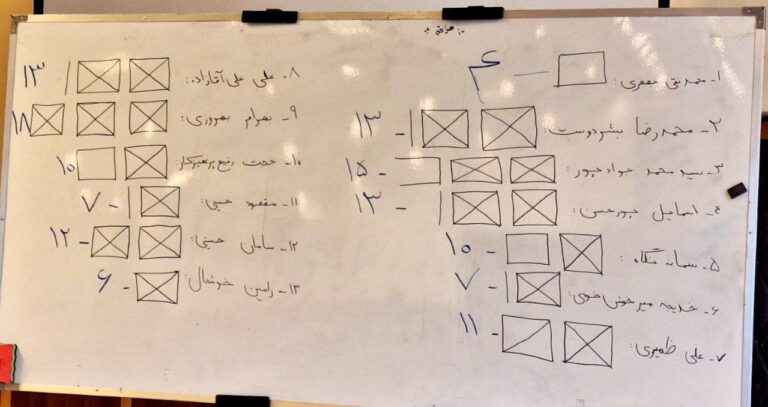 ۱- محمد تقی جعفری: — ۴
۲- محمدرضا بشردوست: - ۱۳
۳- سید محمد جواد جپور: - ۱۵
۴- اسماعیل جبور حسن: - ۱۳
۵- سمانه نگاه: - ۱۰
۶- خدیجه میر خوش خوی: - ۷
۷- علی ظهیری: - ۱۱
۸- علی علی آقازاده: ۱۳
۹- بهرام بهروزی: ۱۸
۱۰- حجت رفیع پرهیزکار: ۱۰
۱۱- مقصود حسینی: - ۷
۱۲- سامان حسینی: - ۱۲
۱۳- رامین خوشحال: - ۶